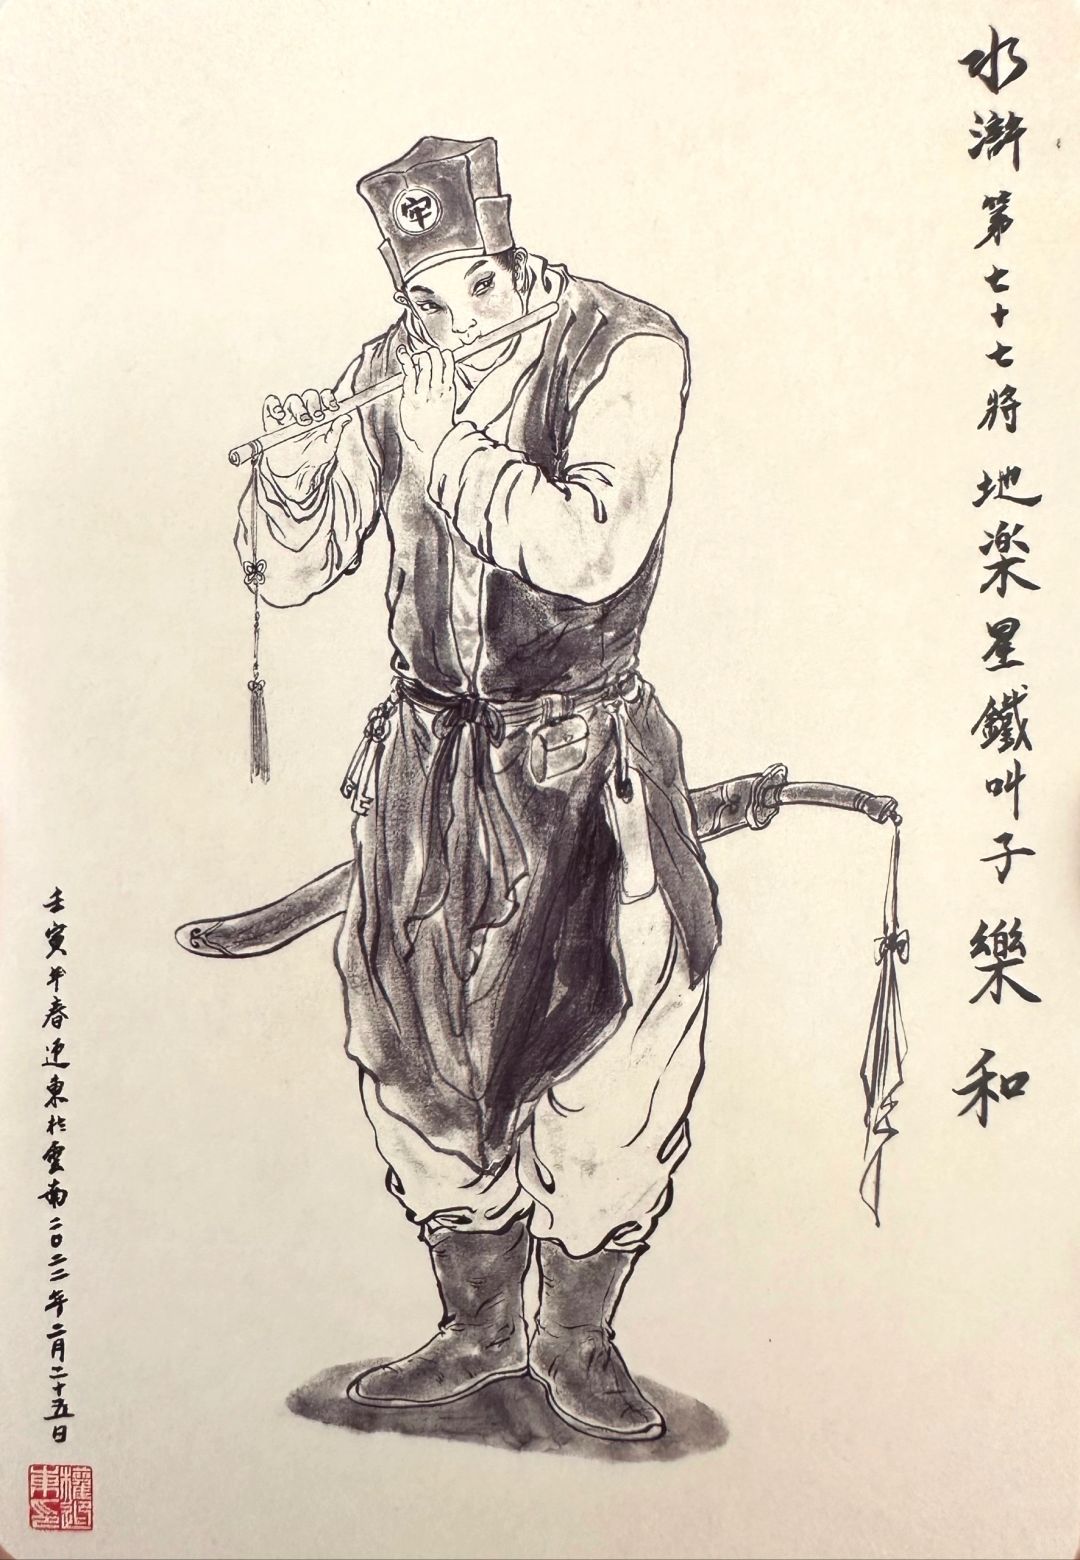 水滸第七十七將 地楽星鐵叫子 樂和
牢
壬寅年春迎東於雲南二〇二二年二月二十五日
權迎東印